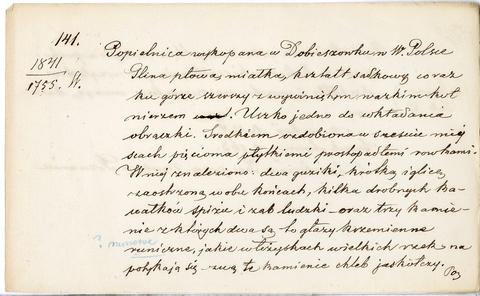 141.
1841
1755. W.
Popielnica wykopana w Dobieszewku w W. Polsce
Glina płowa, miałka, kształt salkowy, coraz
ku górze szerszy z wywiniętym wązkim koł
nierzem. Uszko jedno do wkładania
obrączki. Środkiem ozdobiona w sześciu miej
scach pięcioma płytkiemi prostopadłemi rowkami.
W niej znaleziono: dwa guziki, krótką iglicę,
zaostrzoną w obu końcach, kilka drobnych ka-
wałków spiżu i ząb ludzki – oraz trzy kamie-
nie z których dwa są to głazy krzemienne
? numowe
runiczne, jakie w łożyskach wielkich rzek na
potykają się – zwą te kamienie chleb jaskółczy.